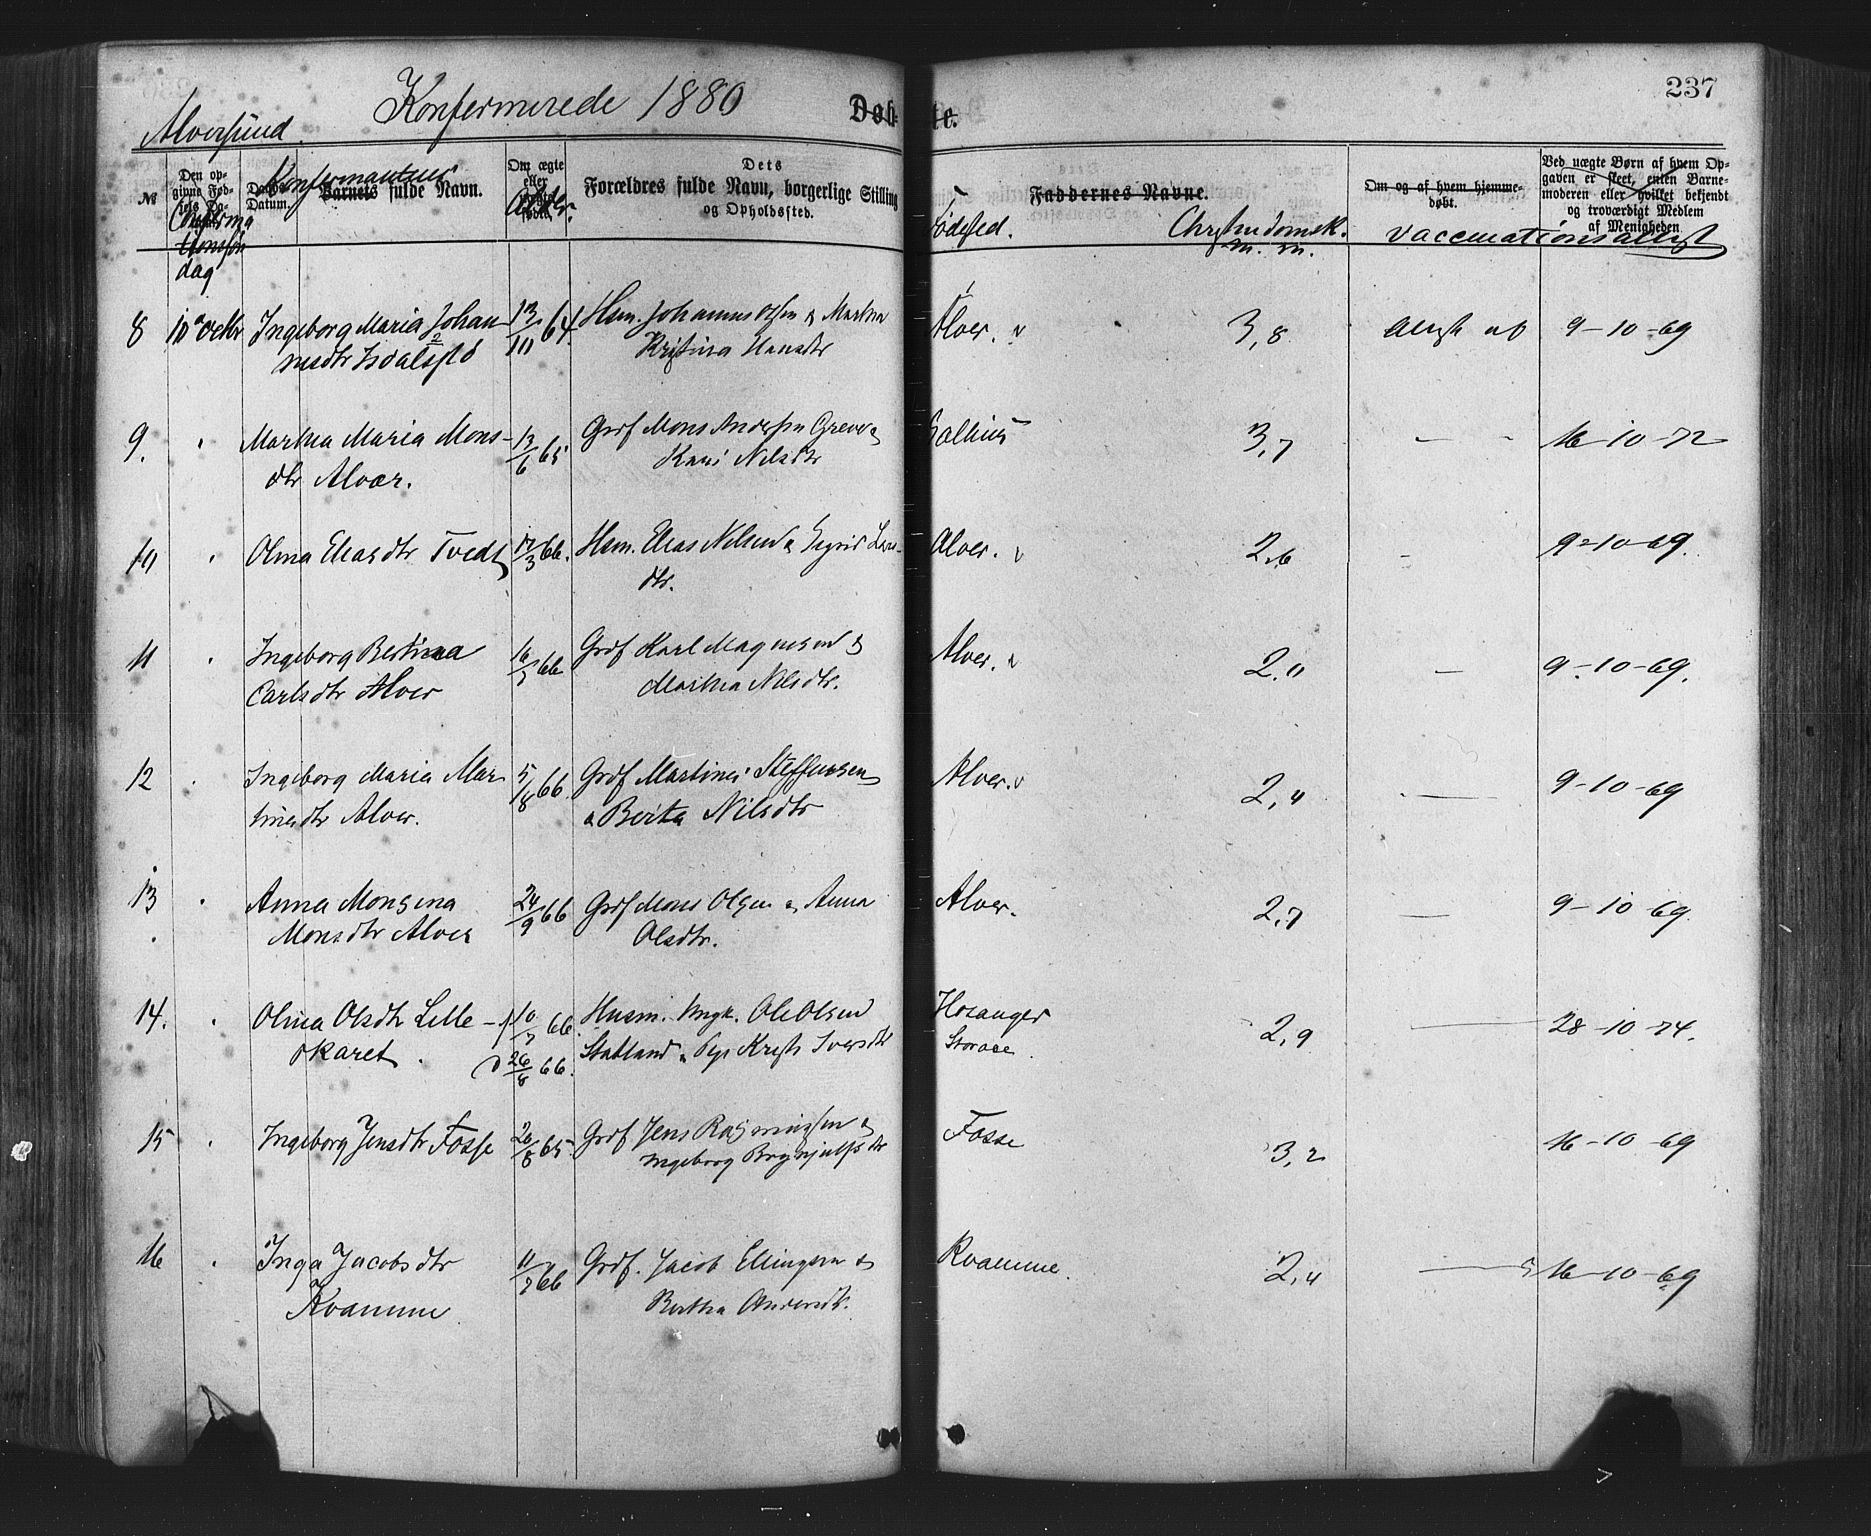 237
Konfermerede 1880
Døb- te.
Alversund.
№
Den opgivne Fødsels Da-
Confirmationssøndag
Daabs-Datum.
Konfermantens
Barnets fulde Navn.
Om ægte eller
Dets
Forældres fulde Navn, borgerlige Stilling
og Opholdssted.
Fødested.
Faddernes Navne.
Christendomsk.
m. m.
Om og af hvem hjemme-
døbt.
Ved uægte Børn af hvem Op-
gaven er skeet, enten Barne-
moderen eller hvilket bekjendt
og troværdigt Medlem
af Menigheden.
Vaccinationsattest
8 10 octbr Ingeborg Maria Johan- 13/10 64 Hsm. Johannes Olsen & Martha Alver. 3,8 Attest af 9-10-69
nesdtr Isdalstø Kristina Hansdtr
9. " Martha Maria Mons- 13/6 65 Grdf Mons Andersen 3,7 - " 16-10-72
dtr Alvær. Kari Nilsdtr
10 " Olina Eliasdtr Tvedt 17/3 66. Hsm. Elias Nilsen & Sigrid Lars- Alver. 2,6 - 9-10-69.
dtr.
11 " Ingeborg Bertina 16/5 66 Grdf Karl Magnesen & Alver. 2,0 - 9-10-69.
Carlsdtr Alver Martha Nilsdtr.
12 " Ingeborg Maria Mar- 5/8 66 Grdf Martines Steffensen Alver. 2,4 - 9-10-69
tinesdtr Alver. & Berta Nilsdtr
13 " Anna Monsina 24/9 66 Grdf Mons Olsen & Anna Alver. 2,7 - 9-10-69.
Monsdtr Alver Olsdtr.
14. " Olina Olsdtr Lille- f 10/7 66 Husm. Ungk. Ole Olsen Hosanger 2,9 - 28-10-74.
skaret. d 26/8 66. Statland & Pige Krist. Iversdtr
15 " Ingeborg Jensdtr Fosse 26/8 65. Grdf Jens Rasmussen & Fosse 3,2 16-10-69
Ingeborg Brynjulfsdtr
16 " Inga Jacobsdtr 11/7 66 Grdf. Jacob Ellingsen & Kvamme. 2,4 - 16-10-69
Kvamme Bertha Andersdtr.